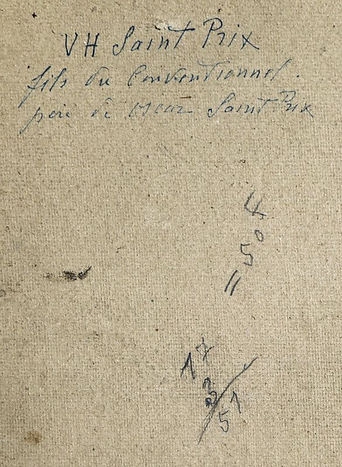 VH Saint Prix
fils du Conventionnel.
père de oscar Saint Prix
= 50 4
17
3
51